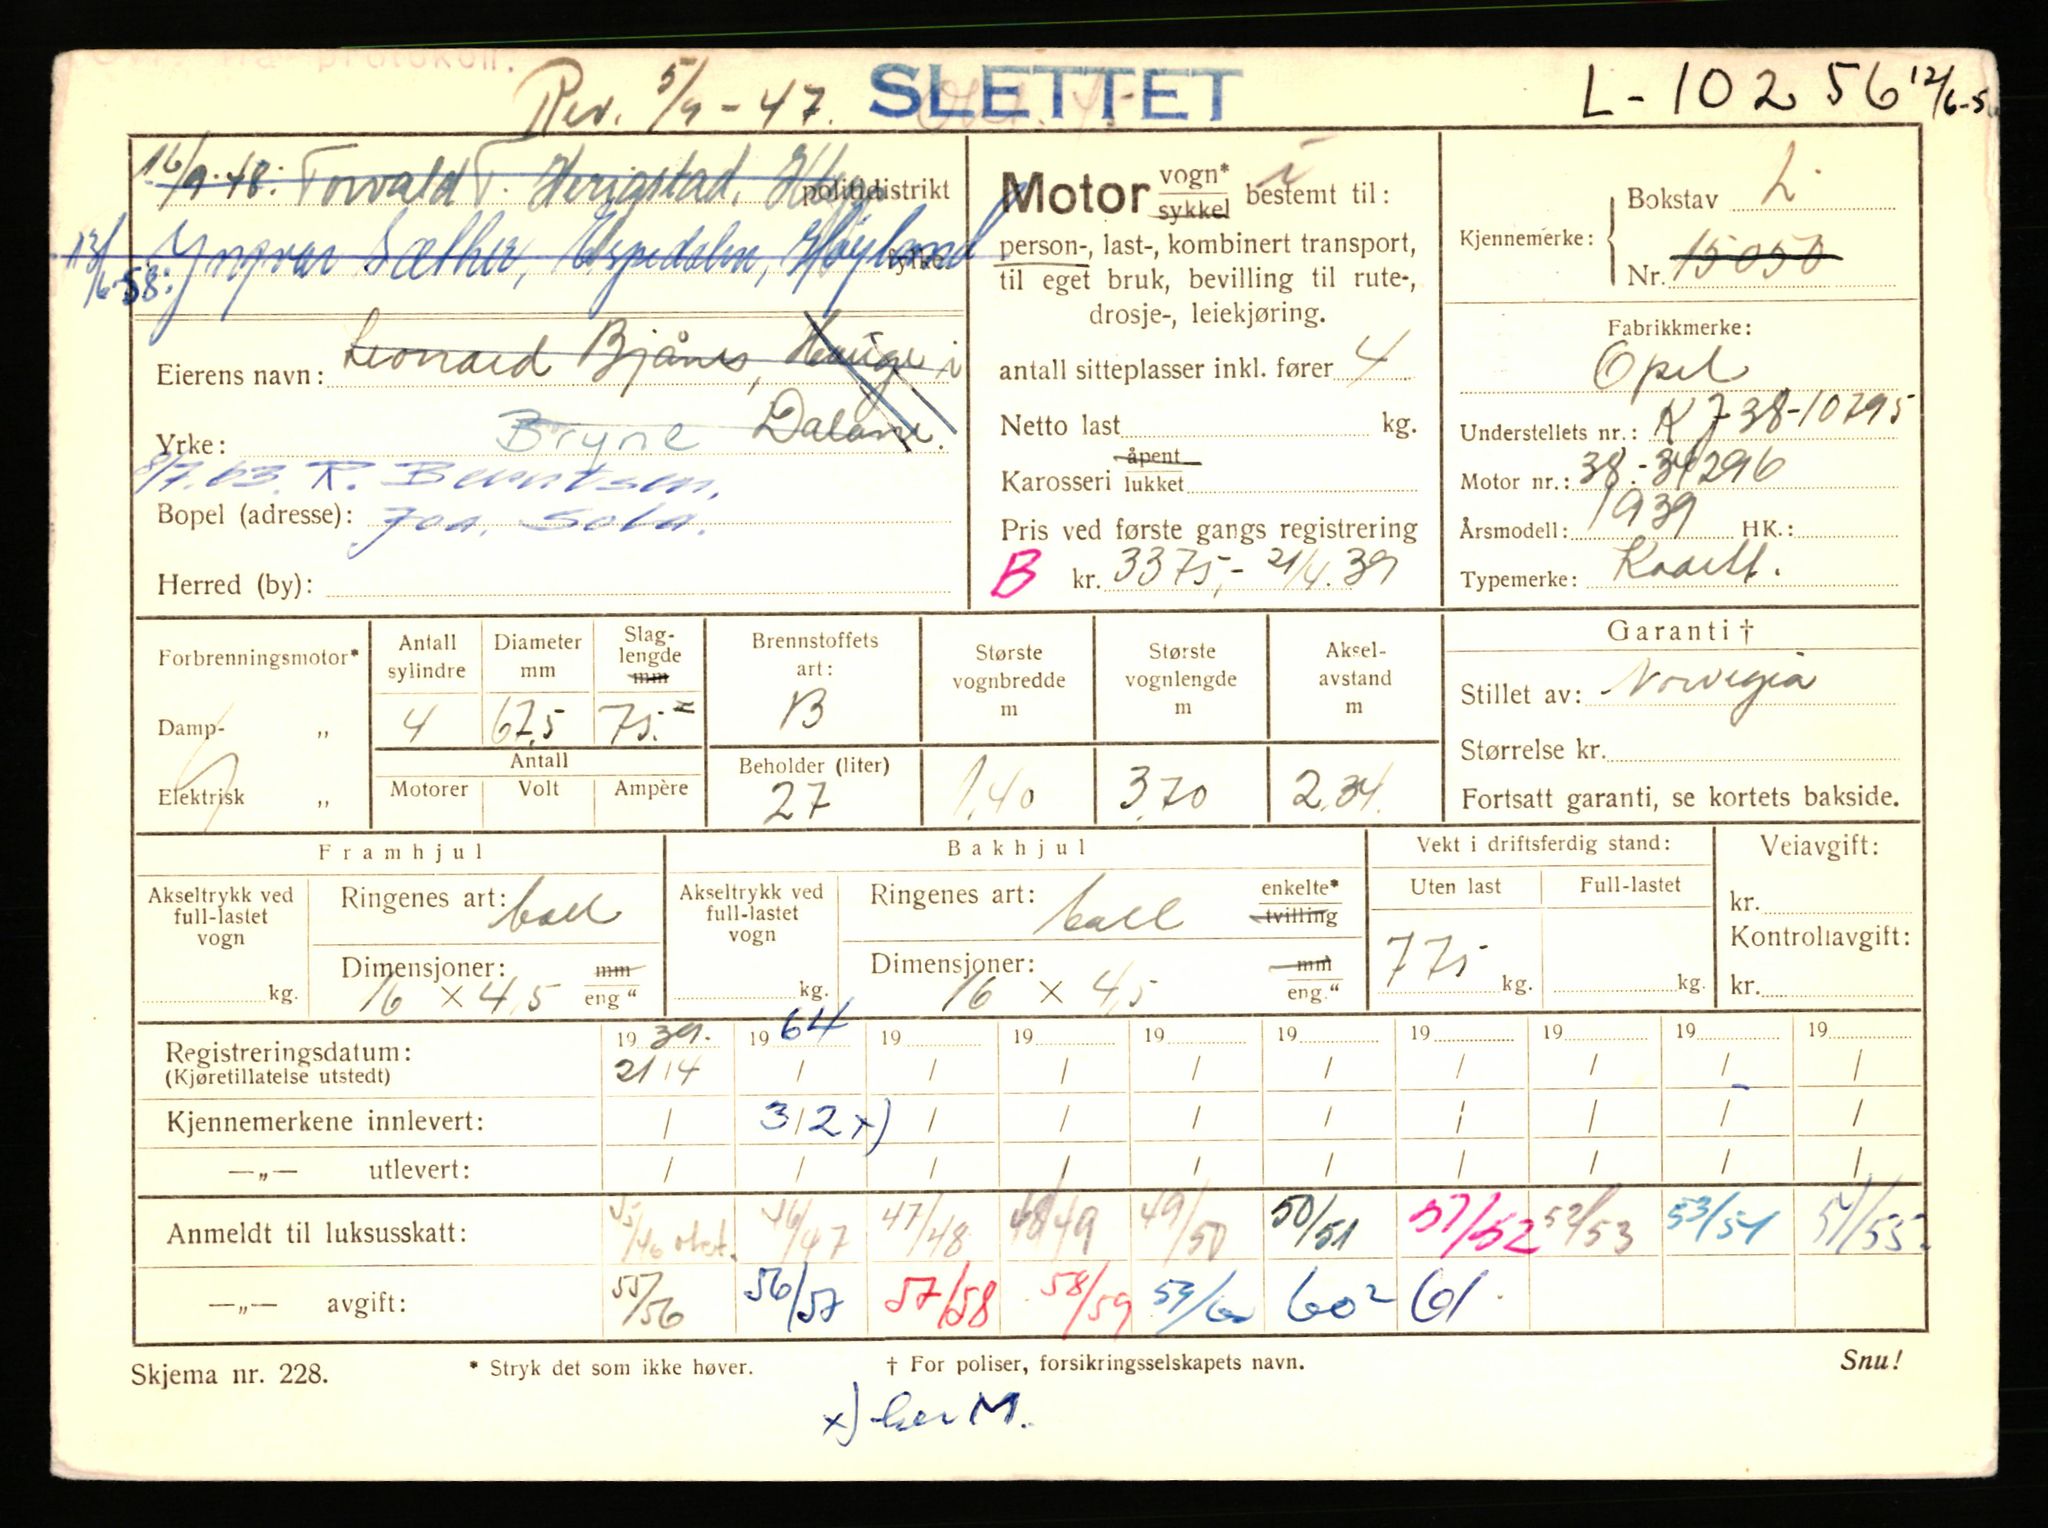 Ovf. fra protokoll.
Rev. 5/9 - 47. SLETTET L - 10256 12/6-5
16/9.48: Torvald T. Herigstad, politidistrikt
13/6-58: Yngvar Sæther, Espedalen, Høyland fylke
Eierens navn: Leonard Bjånes, Hauge i
Yrke: Bryne Dalane.
8/7.63. R. Berntsen.
Bopel (adresse): Joa. Sola.
Herred (by):
Motor vogn* sykkel bestemt til:
person-, last-, kombinert transport,
til eget bruk, bevilling til rute-,
drosje-, leiekjøring.
antall sitteplasser inkl. fører 4
Netto last kg.
Karosseri åpent lukket
Pris ved første gangs registrering
B kr. 3375,- 21/4.39
Kjennemerke: Bokstav L
Nr. 15050
Fabrikkmerke:
Opel
Understellets nr.: KJ38-10795
Motor nr.: 38-34296
Årsmodell: 1939 HK.:
Typemerke: Kadett.
Forbrenningsmotor*
Damp- „
Elektrisk „
Antall sylindre
4
Diameter mm
67,5
Slag-lengde mm
75.-
Antall
Motorer Volt Ampère
Brennstoffets art:
B
Beholder (liter)
27
Største vognbredde m
1,40
Største vognlengde m
3,70
Aksel-avstand m
2,34.
Garanti †
Stillet av: Norvegia
Størrelse kr.
Fortsatt garanti, se kortets bakside.
Framhjul
Akseltrykk ved full-lastet vogn
kg.
Ringenes art: ball
Dimensjoner: mm
16 × 4,5 eng"
Bakhjul
Akseltrykk ved full-lastet vogn
kg.
Ringenes art: ball enkelte* tvilling
Dimensjoner: mm
16 × 4,5 eng."
Vekt i driftsferdig stand:
Uten last Full-lastet
775 kg. kg.
Veiavgift:
kr.
Kontrollavgift:
kr.
19 39. 19 64 19 19 19 19 19 19 19 19
Registreringsdatum: 21/4 / / / / / / / / /
(Kjøretillatelse utstedt)
Kjennemerkene innlevert: / 3/2 x) / / / / / / / /
—„— utlevert: / / / / / / / / / /
Anmeldt til luksusskatt: 45/46 46/47 47/48 48/49 49/50 50/51 51/52 52/53 53/54 54/55.
—„— avgift: 55/56 56/57 57/58 58/59 59/60 60² 61
Skjema nr. 228. * Stryk det som ikke høver. † For poliser, forsikringsselskapets navn. Snu!
x) her M.